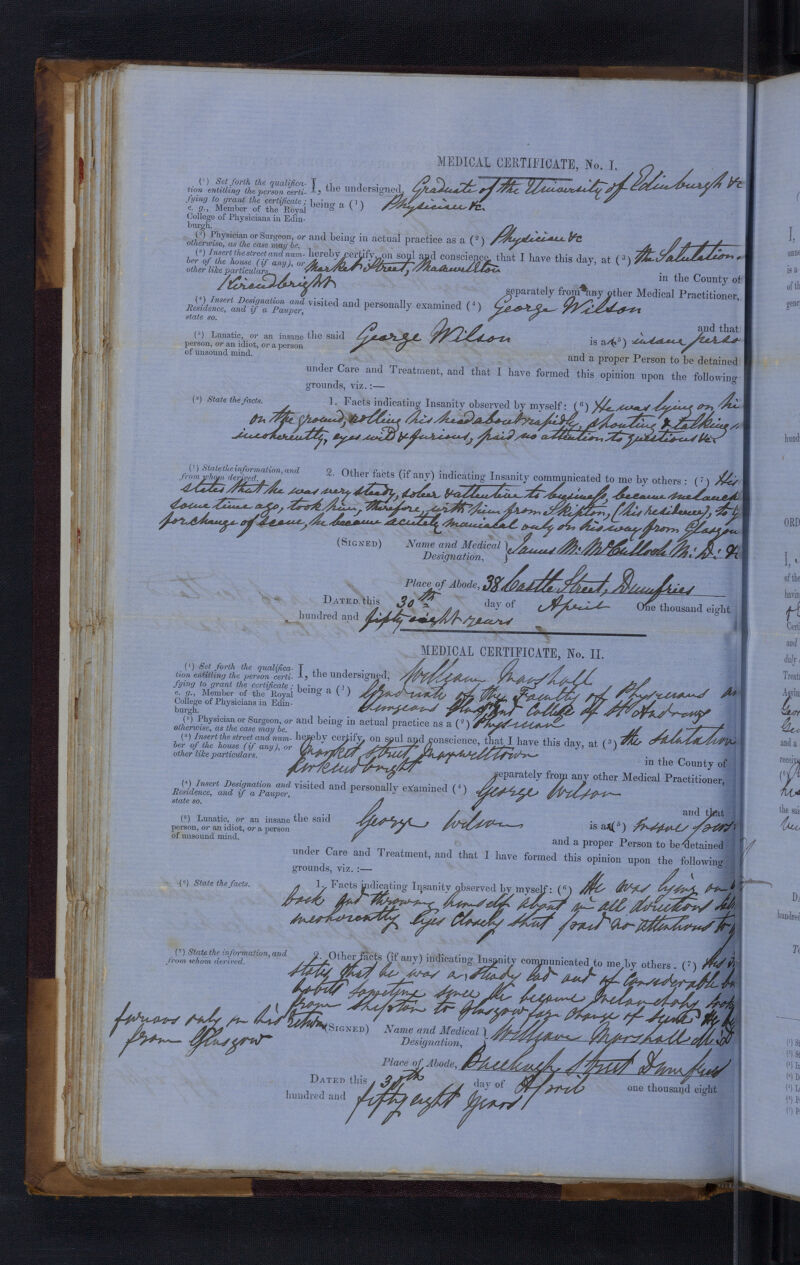 MEDICAL CERTIFICATE, No. I.
(¹) Set forth the qualifica-
tion entitling the person certi-
fying to grant the certificate;
e. g., Member of the Royal
College of Physicians in Edin-
burgh.
I, the undersigned, Graduate of the University of Edinburgh &c
being a (¹) Physician &c.
(²) Physician or Surgeon, or
otherwise, as the case may be.
and being in actual practice as a (²) Physician &c
(³) Insert the street and num-
ber of the house (if any), or
other like particulars.
hereby certify, on soul and conscience, that I have this day, at (³) the Salutation
Market Street, Maxwellton
in the County of
Kircudbright
separately from any other Medical Practitioner,
(⁴) Insert Designation and
Residence, and if a Pauper,
state so.
visited and personally examined (⁴) George Wilson
and that
(⁵) Lunatic, or an insane
person, or an idiot, or a person
of unsound mind.
the said George Wilson is a (⁵) insane perso
and a proper Person to be detained
under Care and Treatment, and that I have formed this opinion upon the following
grounds, viz. :—
(⁶) State the facts.
1. Facts indicating Insanity observed by myself: (⁶) He was lying on hi
on the ground, rolling his head about rapidly, shouting & talking
incoherently, eyes wild & furious, paid no attention to questions &c.
(⁷) State the information, and
from whom derived.
2. Other facts (if any) indicating Insanity communicated to me by others: (⁷) His
states that he was very steady, sober & attentive to business, became melanch
some time ago, took him, therefore, with him from Skipton, (his residence), to G
for change of scene, he became acutely maniacal only on his way from Glasgow
(SIGNED) Name and Medical
Designation,
James M. McCulloch M: D: &
Place of Abode, 38 Castle Street, Dumfries
DATED this 30th day of April One thousand eight
hundred and fifty eight years
MEDICAL CERTIFICATE, No. II.
(¹) Set forth the qualifica-
tion entitling the person certi-
fying to grant the certificate;
e. g., Member of the Royal
College of Physicians in Edin-
burgh.
I, the undersigned, William Marshall
being a (¹) Graduate of the Faculty of Physicians an
Surgeons Glasgow & College of St Andrews
(²) Physician or Surgeon, or
otherwise, as the case may be.
and being in actual practice as a (²) Physician
(³) Insert the street and num-
ber of the house (if any), or
other like particulars.
hereby certify, on soul and conscience, that I have this day, at (³) the Salutation
Market Street Maxwelltown
in the County of
Kirkcudbright
separately from any other Medical Practitioner,
(⁴) Insert Designation and
Residence, and if a Pauper,
state so.
visited and personally examined (⁴) George Wilson
and that
(⁵) Lunatic, or an insane
person, or an idiot, or a person
of unsound mind.
the said George Wilson is a (⁵) Insane pers
and a proper Person to be detained
under Care and Treatment, and that I have formed this opinion upon the following
grounds, viz. :—
(⁶) State the facts.
1. Facts indicating Insanity observed by myself: (⁶) He was lying on
back and throwing himself about in all directions
incoherently Eyes closely shut paid no attentions to
(⁷) State the information, and
from whom derived.
2. Other facts (if any) indicating Insanity communicated to me by others. (⁷) His
states that he was a steady lad and of considerable
habits sometime since He became melancholy took
from Skipton to Glasgow for change of scene He
furious only on his return
from Glasgow
(SIGNED) Name and Medical
Designation,
William Marshall M D
Place of Abode, Buccleugh Street Dumfries
DATED this 30th day of April one thousand eight
hundred and fifty eight years